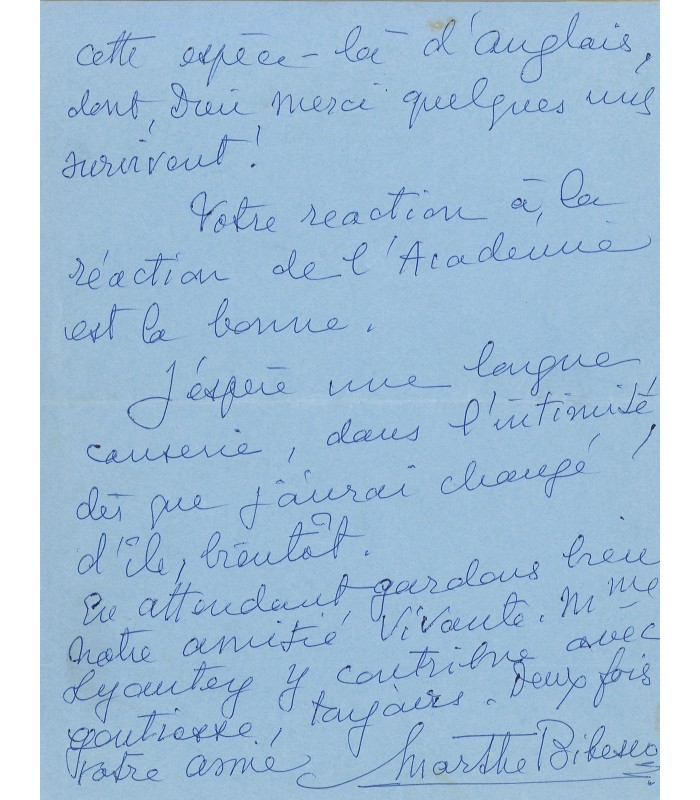 cette espèce-là d'anglais,
dont, Dieu merci quelques uns
survivent!
Votre reaction à la
réaction de l'Académie
est la bonne.
J'espère une longue
causerie, dans l'intimité
dès que j'aurai changé
d'île, bientôt.
En attendant, gardons bien
notre amitié vivante. Mme
Lyautey y contribue avec
toujours. Deux fois
votre amie
Marthe Bibesco